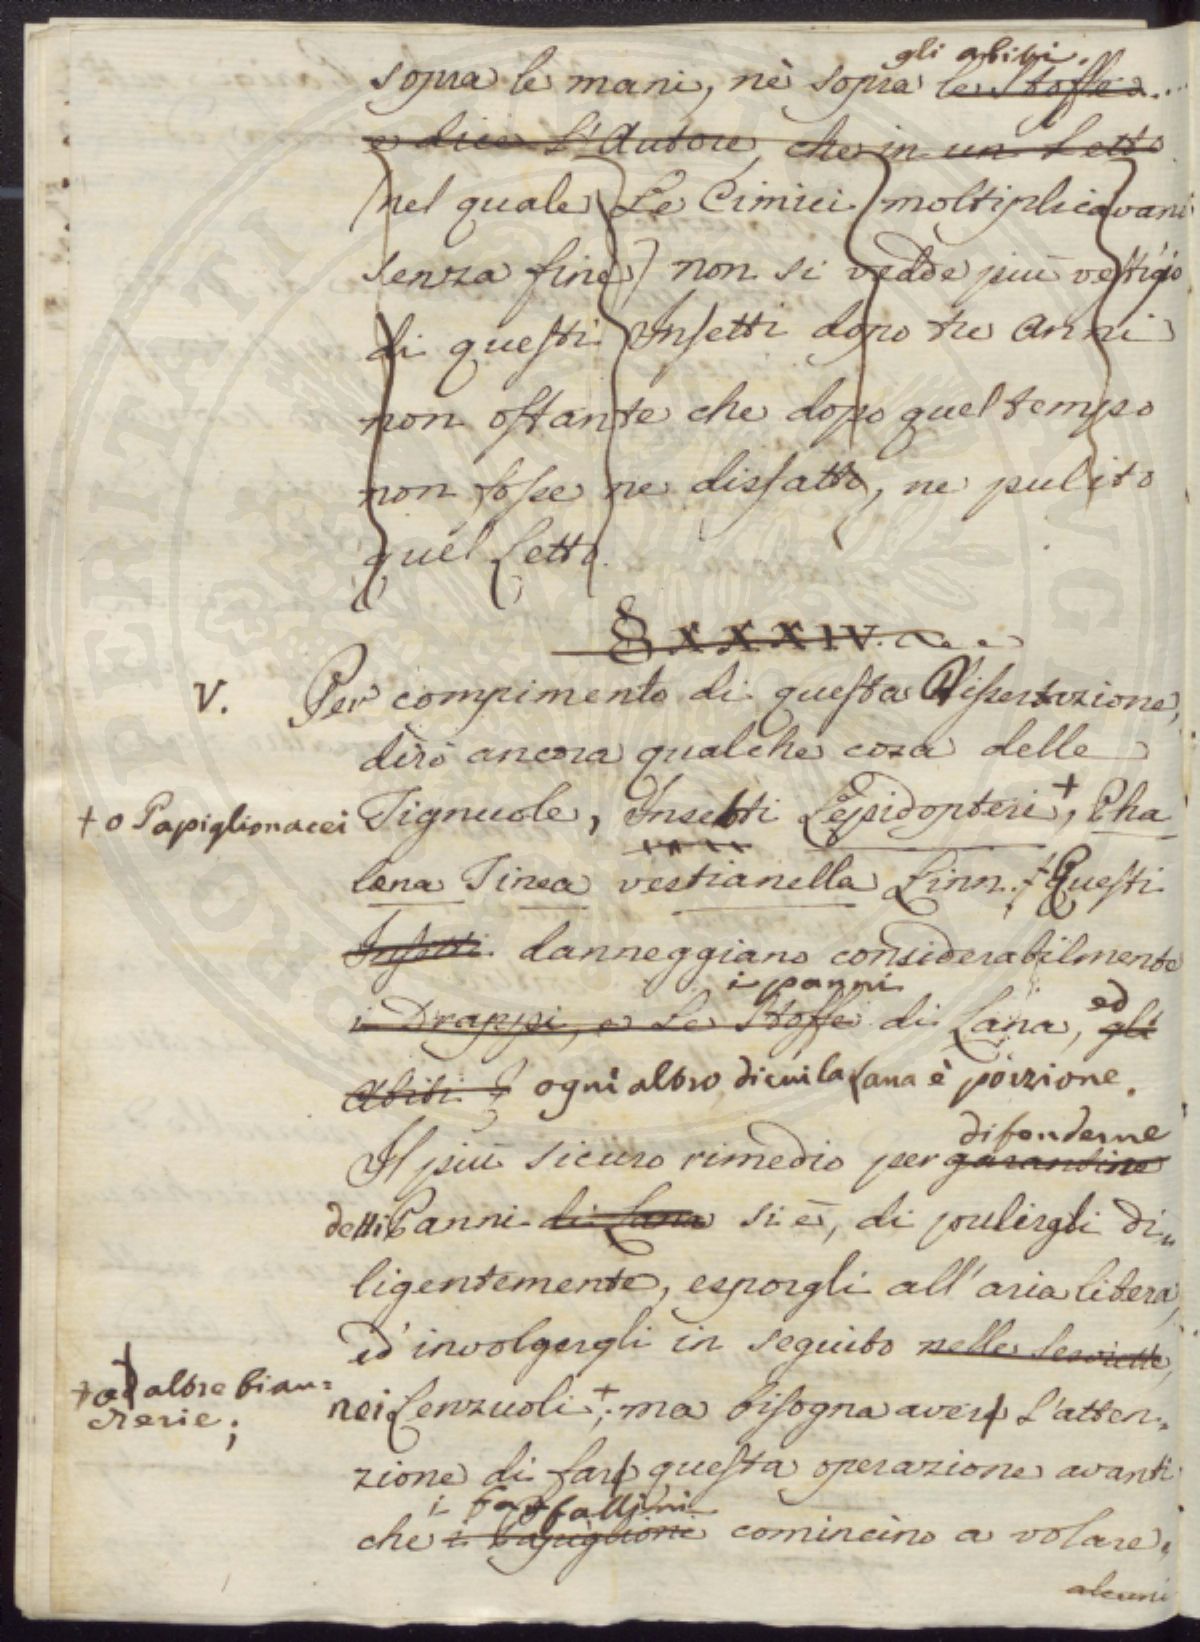 gli abiti.
sopra le mani, nè sopra le Stoffe....
e dice L'Autore, che in un Letto
(nel quale Le Cimici moltiplicavani
senza fine) non si vedde più vestigio
di questi Insetti dopo tre Anni
non ostante che dopo quel tempo
non fosse ne disfatto, ne pulito
quel Letto.
§ XXXIV.
V. Per compimento di questa Dissertazione,
dirò ancora qualche cosa delle
+ o Papiglionacei
Tignuole, Insetti Lepidopteri+, Pha
læna Tinea vestianella Linn. Questi
Insetti danneggiano considerabilmente
i panni
ed
i Drappi, e Le Stoffe di Lana, gli
Abiti ogni altro di cui la Lana è porzione.
difonderne
Il più sicuro rimedio per garantine
detti Panni di Lana si è, di pulirgli di„
ligentemente, esporgli all'aria libera,
ed' involgergli in seguito nelle Serviette,
+ od altre bian=
cherie;
nei Lenzuoli+; ma bisogna avere L'atten„
zione di fare questa operazione avanti
i farfallini
che i Papiglioni comincino a volare.
alcuni